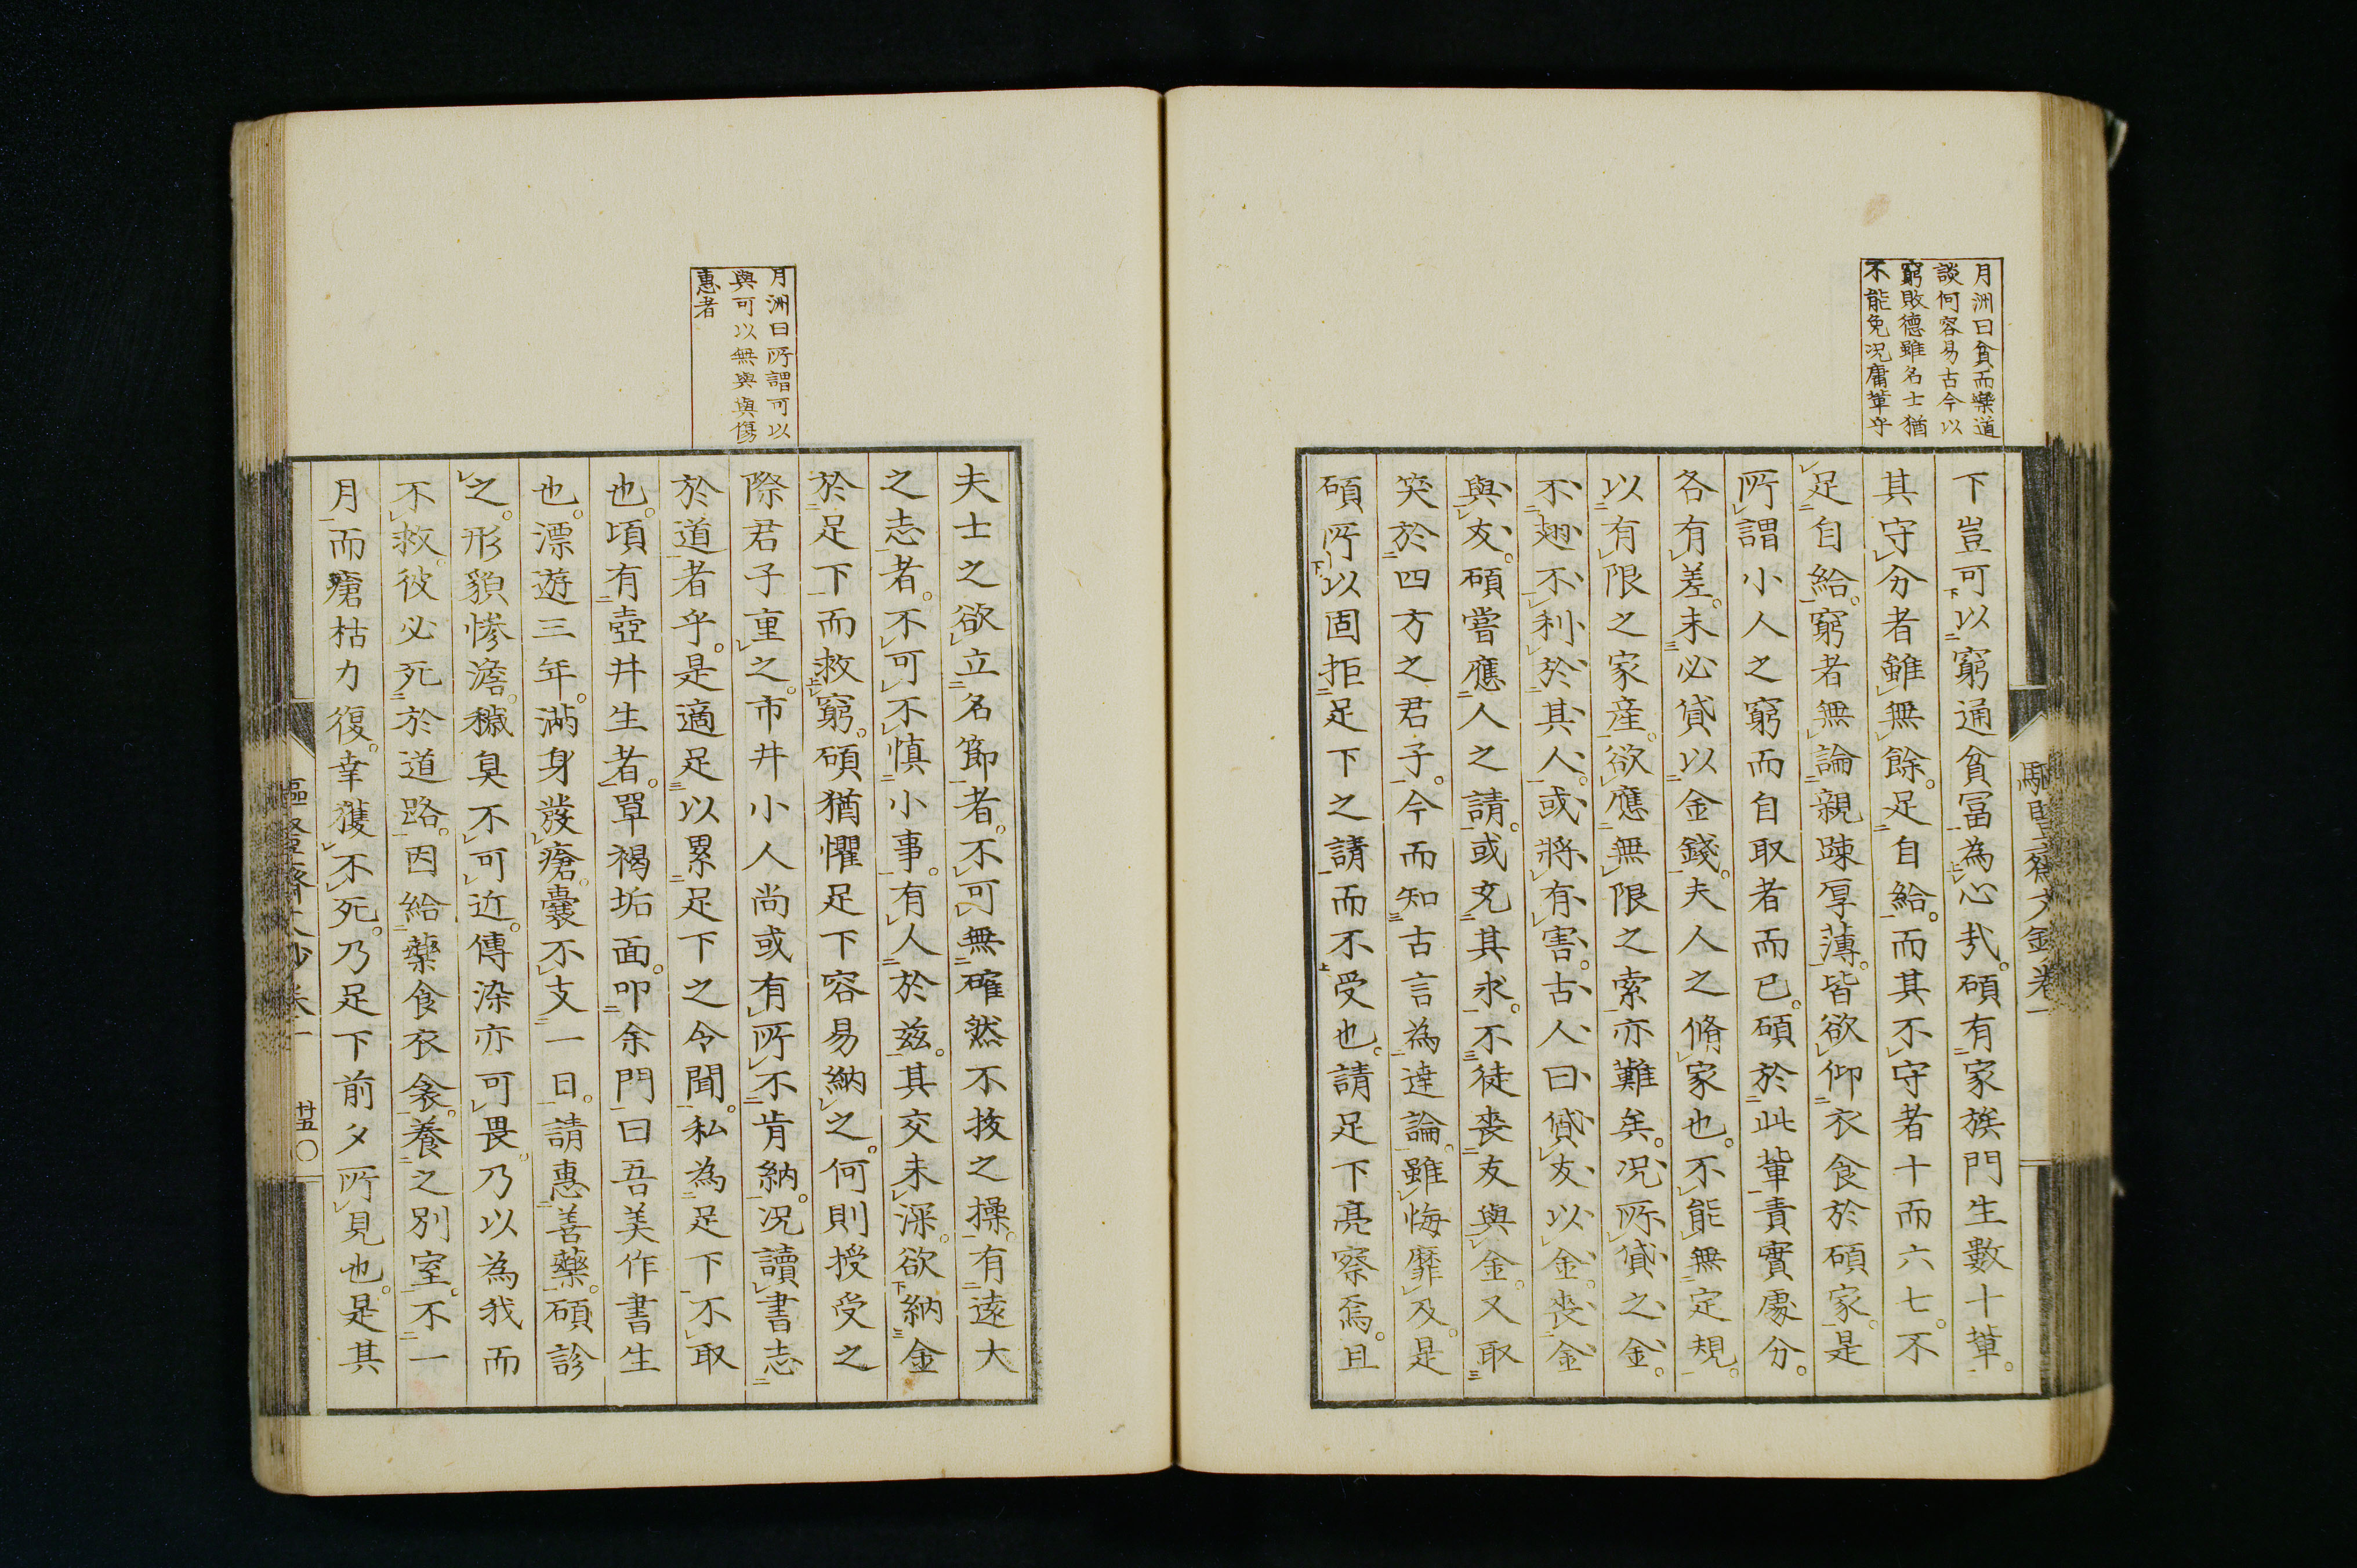 月洲曰貧而樂道
談何容易古今以
窮敗德雖名士猶
不能免况庸輩乎
下豈可以窮通貧冨為心㢤。碩有家族門生數十輩。
其守分者雖無餘。足自給。而其不守者十而六七。不
足自給。窮者無論親踈厚薄。皆欲仰衣食於碩家。是
所謂小人之窮而自取者而已。碩於此輩責實處分。
各有差。未必貸以金錢。夫人之脩家也。不能無定規。
以有限之家産。欲應無限之索亦難矣。况所貸之金。
不翅不利於其人。或將有害。古人曰貸友以金。喪金
與友。碩嘗應人之請。或充其求。不徒喪友與金。又取
笑於四方之君子。今而知古言為達論。雖悔靡及。是
碩所以固拒足下之請而不受也。請足下亮察焉。且
月洲曰所謂可以
與可以無與與傷
惠者
夫士之欲立名節者。不可無確然不抜之操。有遠大
之志者。不可不慎小事。有人於兹。其交未深。欲納金
於足下而救窮。碩猶懼足下容易納之。何則授受之
際君子重之。市井小人尚或有所不肯納。况讀書志
於道者乎。是適足以累足下之令聞。私為足下不取
也。頃有壺井生者。單褐垢面。叩余門曰吾美作書生
也。漂遊三年。滿身發瘡。囊不支一日。請惠善藥。碩診
之。形貌慘澹。穢臭不可近。傳染亦可畏。乃以為我而
不救。彼必死於道路。因給藥食衣衾。養之別室。不一
月而瘡枯力復。幸獲不死。乃足下前夕所見也。是其
廿五